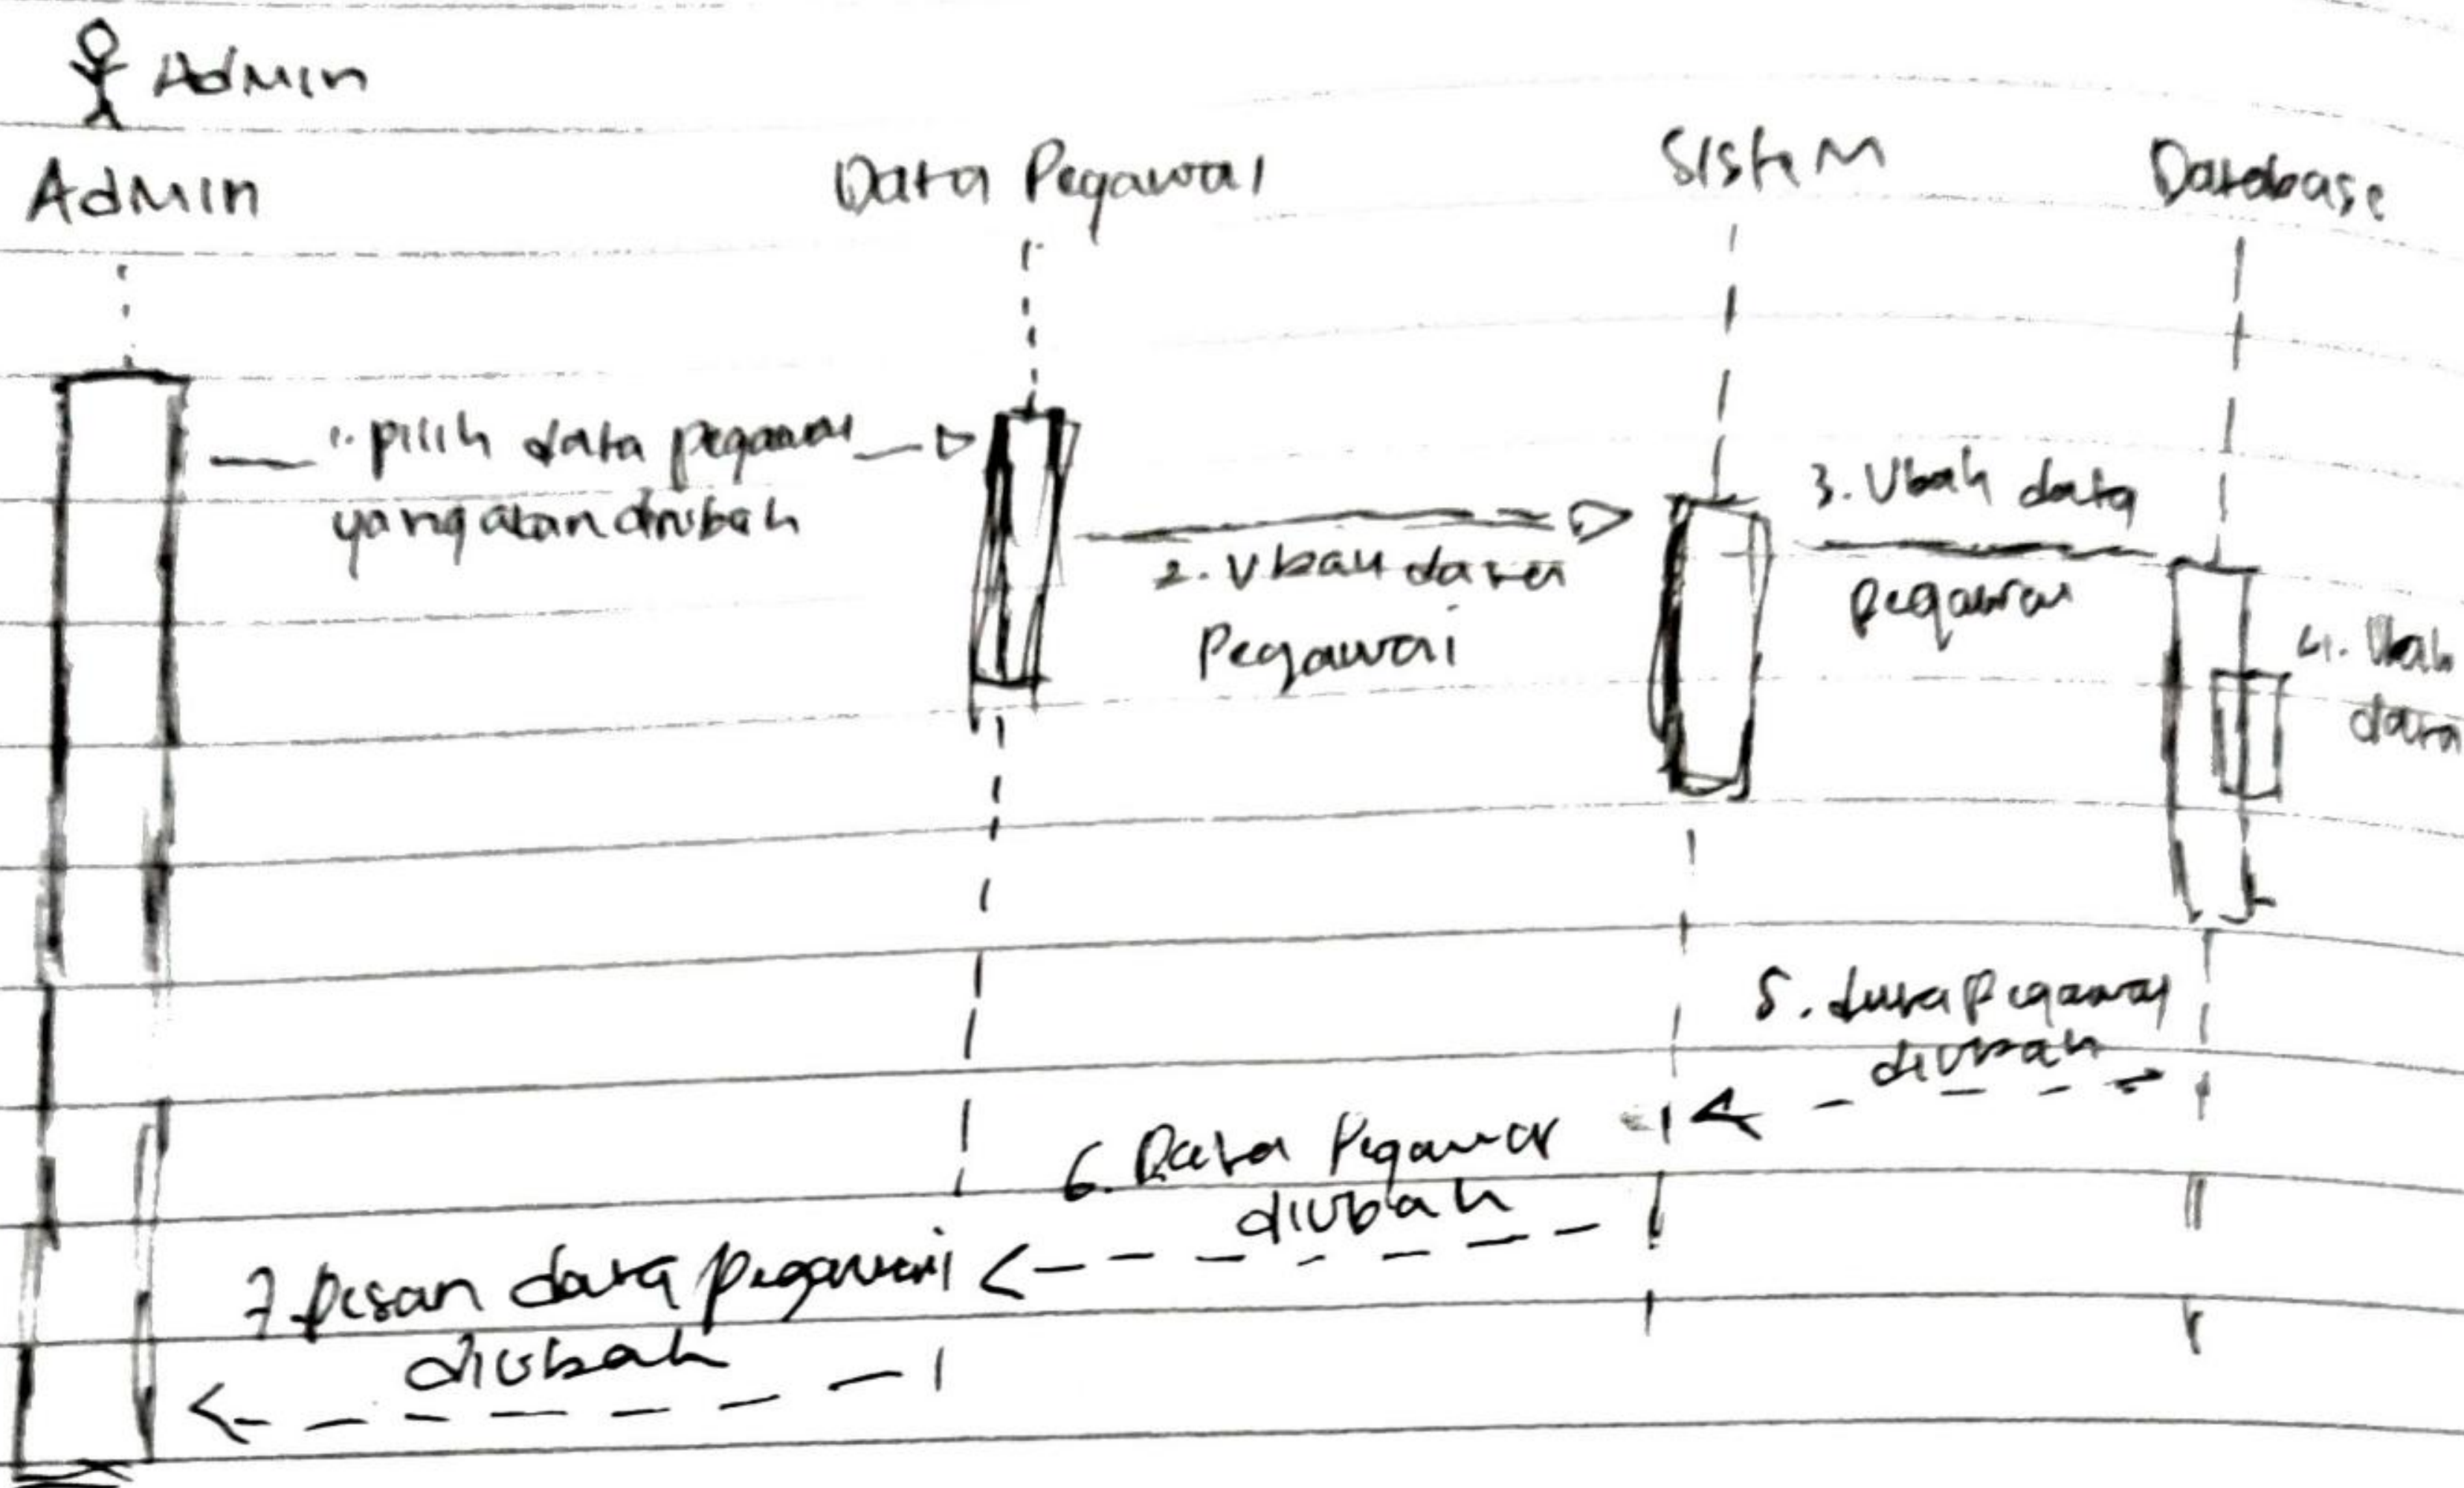 Admin
Admin
Data Pegawai
Sistem
Database
1. pilih data pegawai
yang akan diubah
2. Ubah data
Pegawai
3. Ubah data
pegawai
4. Ubah
data
5. data Pegawai
diubah
6. Data Pegawai
diubah
7. pesan data pegawai
diubah